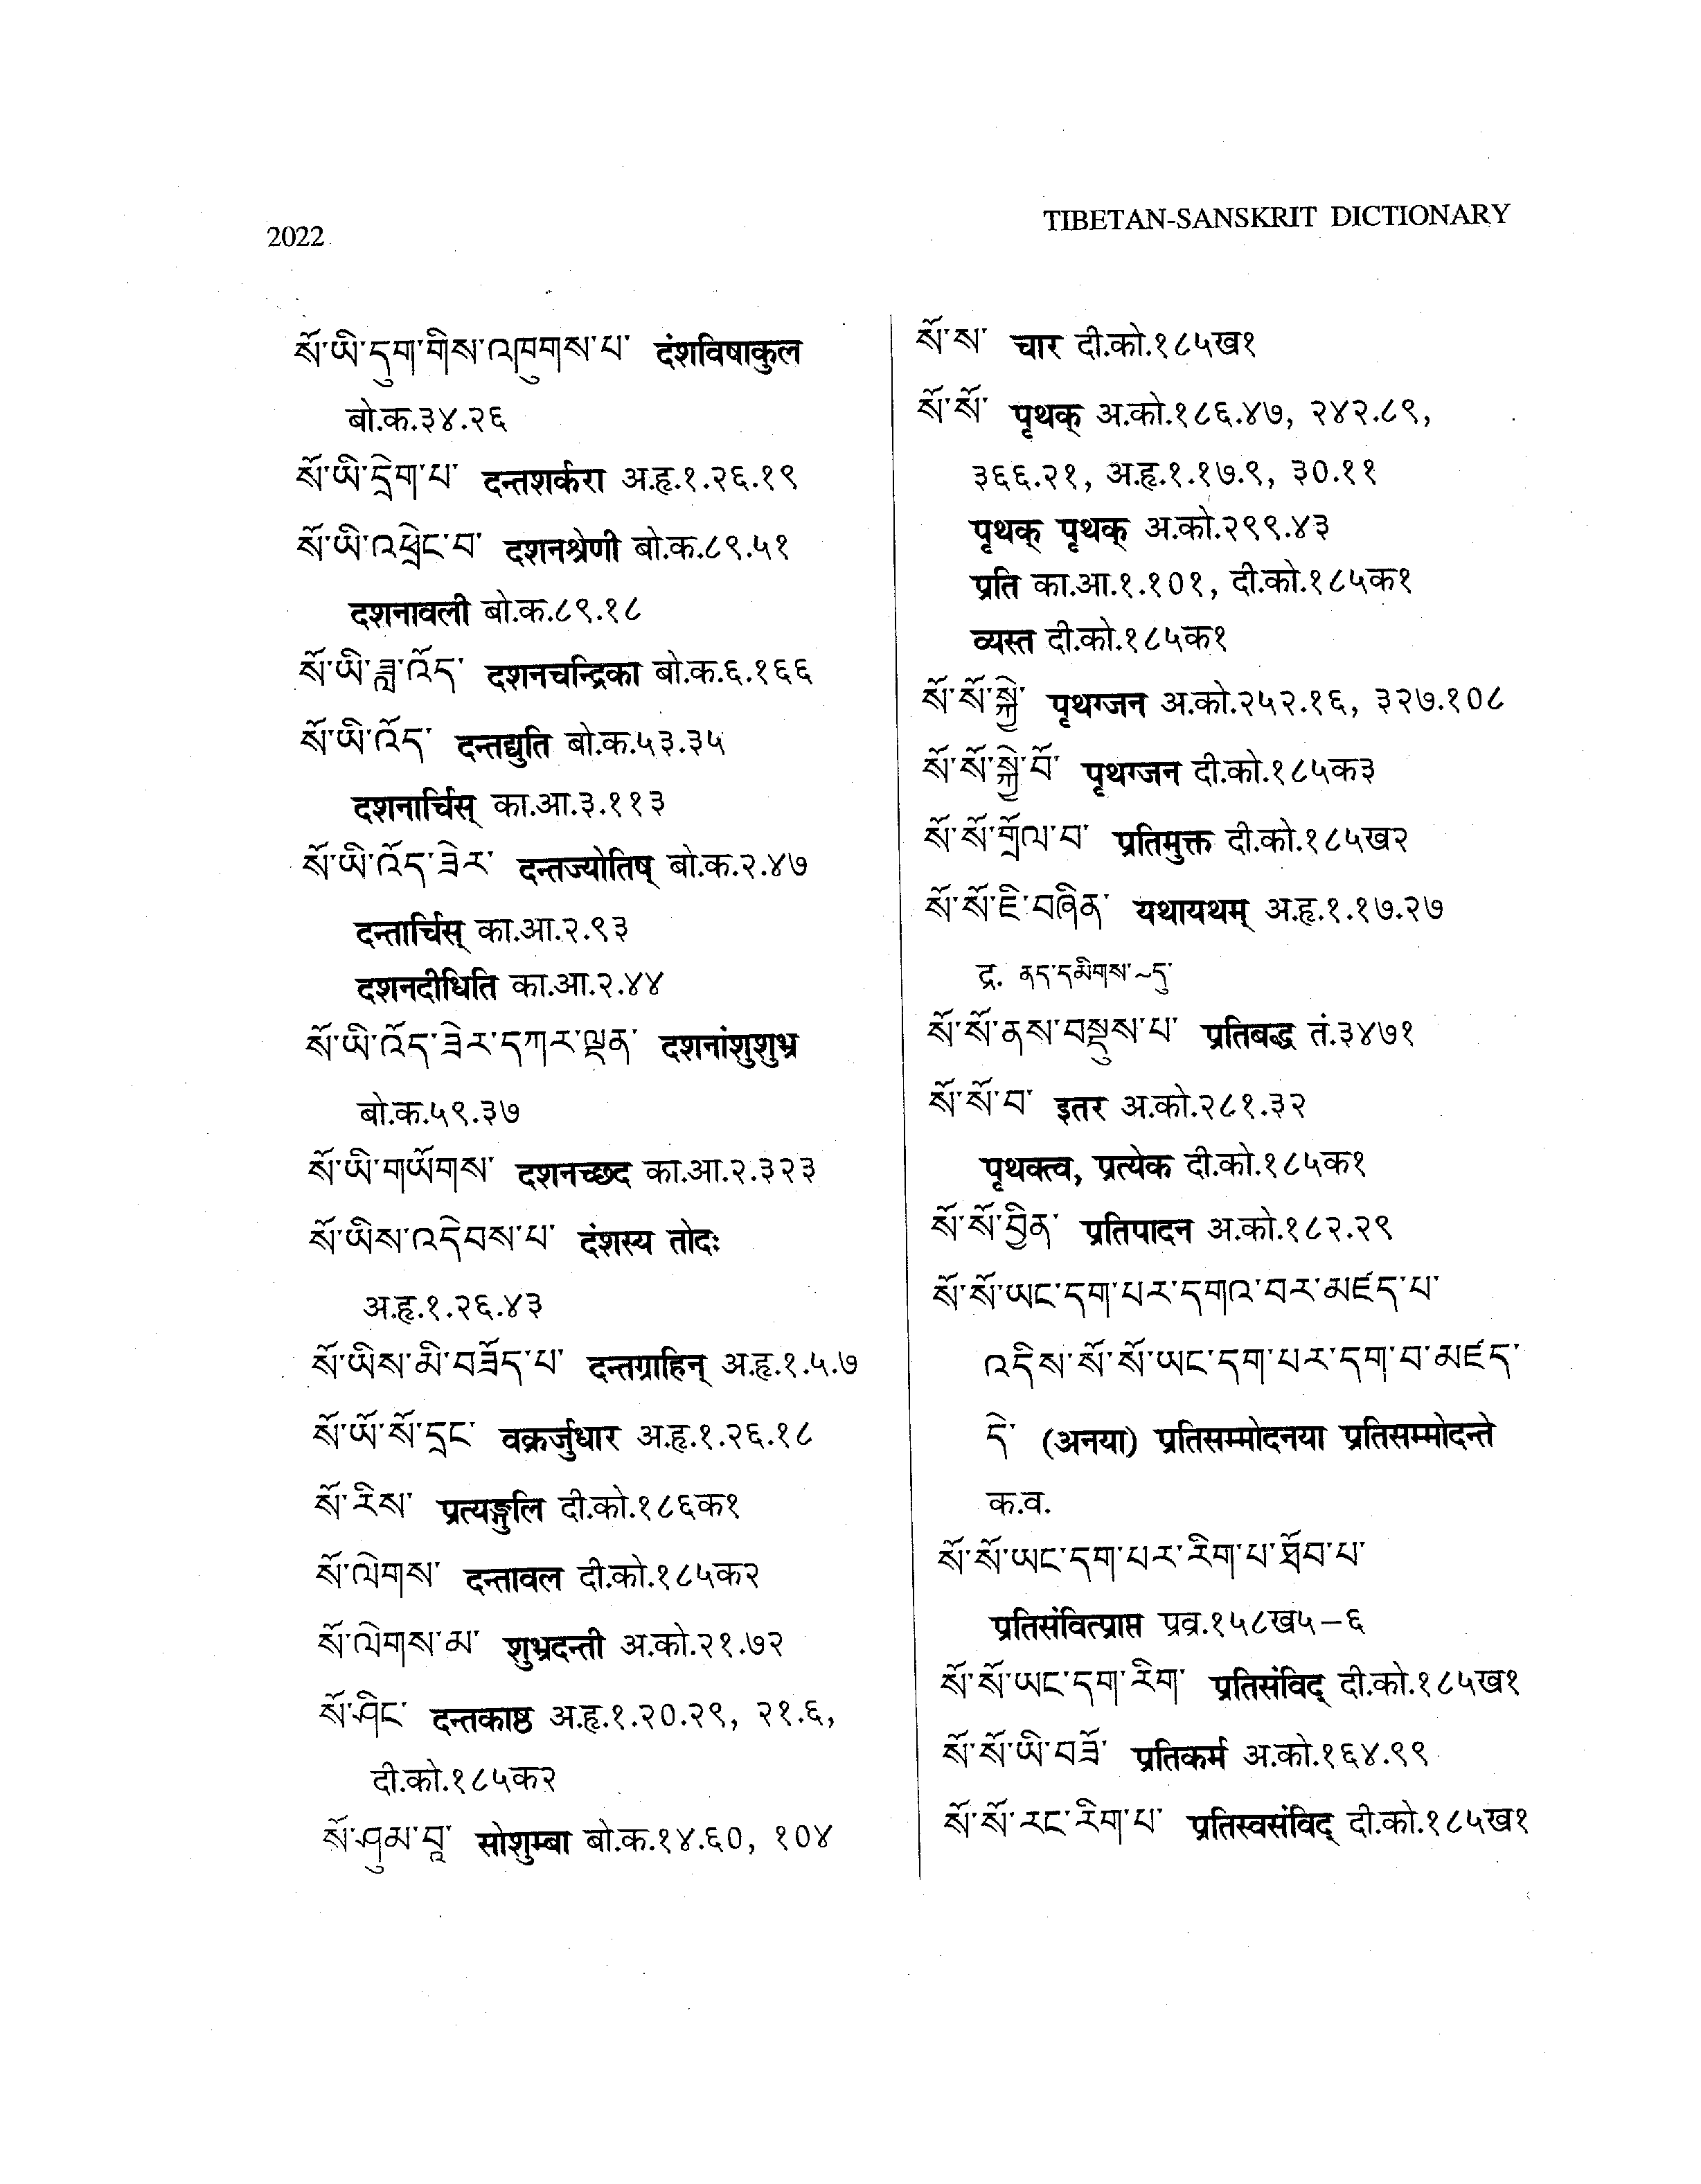 2022
TIBETAN-SANSKRIT DICTIONARY
སོ་ཡི་དུག་གིས་འཁྲུགས་པ་ दंशविषाकुल
बो.क.३४.२६
སོ་ཡི་དྲེག་པ་ दन्तशर्करा अ.हृ.१.२६.१९
སོ་ཡི་འཕྲེང་བ་ दशनश्रेणी बो.क.८९.५१
दशनावली बो.क.८९.१८
སོ་ཡི་ཟླ་འོད་ दशनचन्द्रिका बो.क.६.१६६
སོ་ཡི་འོད་ दन्तद्युति बो.क.५३.३५
दशनार्चिस् का.आ.३.११३
སོ་ཡི་འོད་ཟེར་ दन्तज्योतिष् बो.क.२.४७
दन्तार्चिस् का.आ.२.९३
दशनदीधिति का.आ.२.४४
སོ་ཡི་འོད་ཟེར་དཀར་ལྡན་ दशनांशुशुभ्र
बो.क.५९.३७
སོ་ཡི་གཡོགས་ दशनच्छद का.आ.२.३२३
སོ་ཡིས་འདེབས་པ་ दंशस्य तोदः
अ.हृ.१.२६.४३
སོ་ཡིས་མི་བཟོད་པ་ दन्तग्राहिन् अ.हृ.१.५.७
སོ་ཡོ་སོ་དྲང་ वक्रर्जुधार अ.हृ.१.२६.१८
སོ་རིས་ प्रत्यङ्गुलि दी.को.१८६क१
སོ་ལེགས་ दन्तावल दी.को.१८५क२
སོ་ལེགས་མ་ शुभ्रदन्ती अ.को.२१.७२
སོ་ཤིང་ दन्तकाष्ठ अ.हृ.१.२०.२९, २१.६,
दी.को.१८५क२
སོ་ཤུམ་བཱ་ सोशुम्बा बो.क.१४.६०, १०४
སོ་ས་ चार दी.को.१८५ख१
སོ་སོ་ पृथक् अ.को.१८६.४७, २४२.८९,
३६६.२१, अ.हृ.१.१७.९, ३०.११
पृथक् पृथक् अ.को.२९९.४३
प्रति का.आ.१.१०१, दी.को.१८५क१
व्यस्त दी.को.१८५क१
སོ་སོ་སྐྱེ་ पृथग्जन अ.को.२५२.१६, ३२७.१०८
སོ་སོ་སྐྱེ་བོ་ पृथग्जन दी.को.१८५क३
སོ་སོ་གྲོལ་བ་ प्रतिमुक्त दी.को.१८५ख२
སོ་སོ་ཇི་བཞིན་ यथायथम् अ.हृ.१.१७.२७
द्र. ནད་དམིགས་~དུ་
སོ་སོ་ནས་བསྡུས་པ་ प्रतिबद्ध तं.३४७१
སོ་སོ་བ་ इतर अ.को.२८१.३२
पृथक्त्व, प्रत्येक दी.को.१८५क१
སོ་སོ་བྱིན་ प्रतिपादन अ.को.१८२.२९
སོ་སོ་ཡང་དག་པར་དགའ་བར་མཛད་པ་
འདིས་སོ་སོ་ཡང་དག་པར་དག་བ་མཛད་
དེ་ (अनया) प्रतिसम्मोदनया प्रतिसम्मोदन्ते
क.व.
སོ་སོ་ཡང་དག་པར་རིག་པ་ཐོབ་པ་
प्रतिसंवित्प्राप्त प्रव्र.१५८ख५-६
སོ་སོ་ཡང་དག་རིག་ प्रतिसंविद् दी.को.१८५ख१
སོ་སོ་ཡི་བཟོ་ प्रतिकर्म अ.को.१६४.९९
སོ་སོ་རང་རིག་པ་ प्रतिस्वसंविद् दी.को.१८५ख१